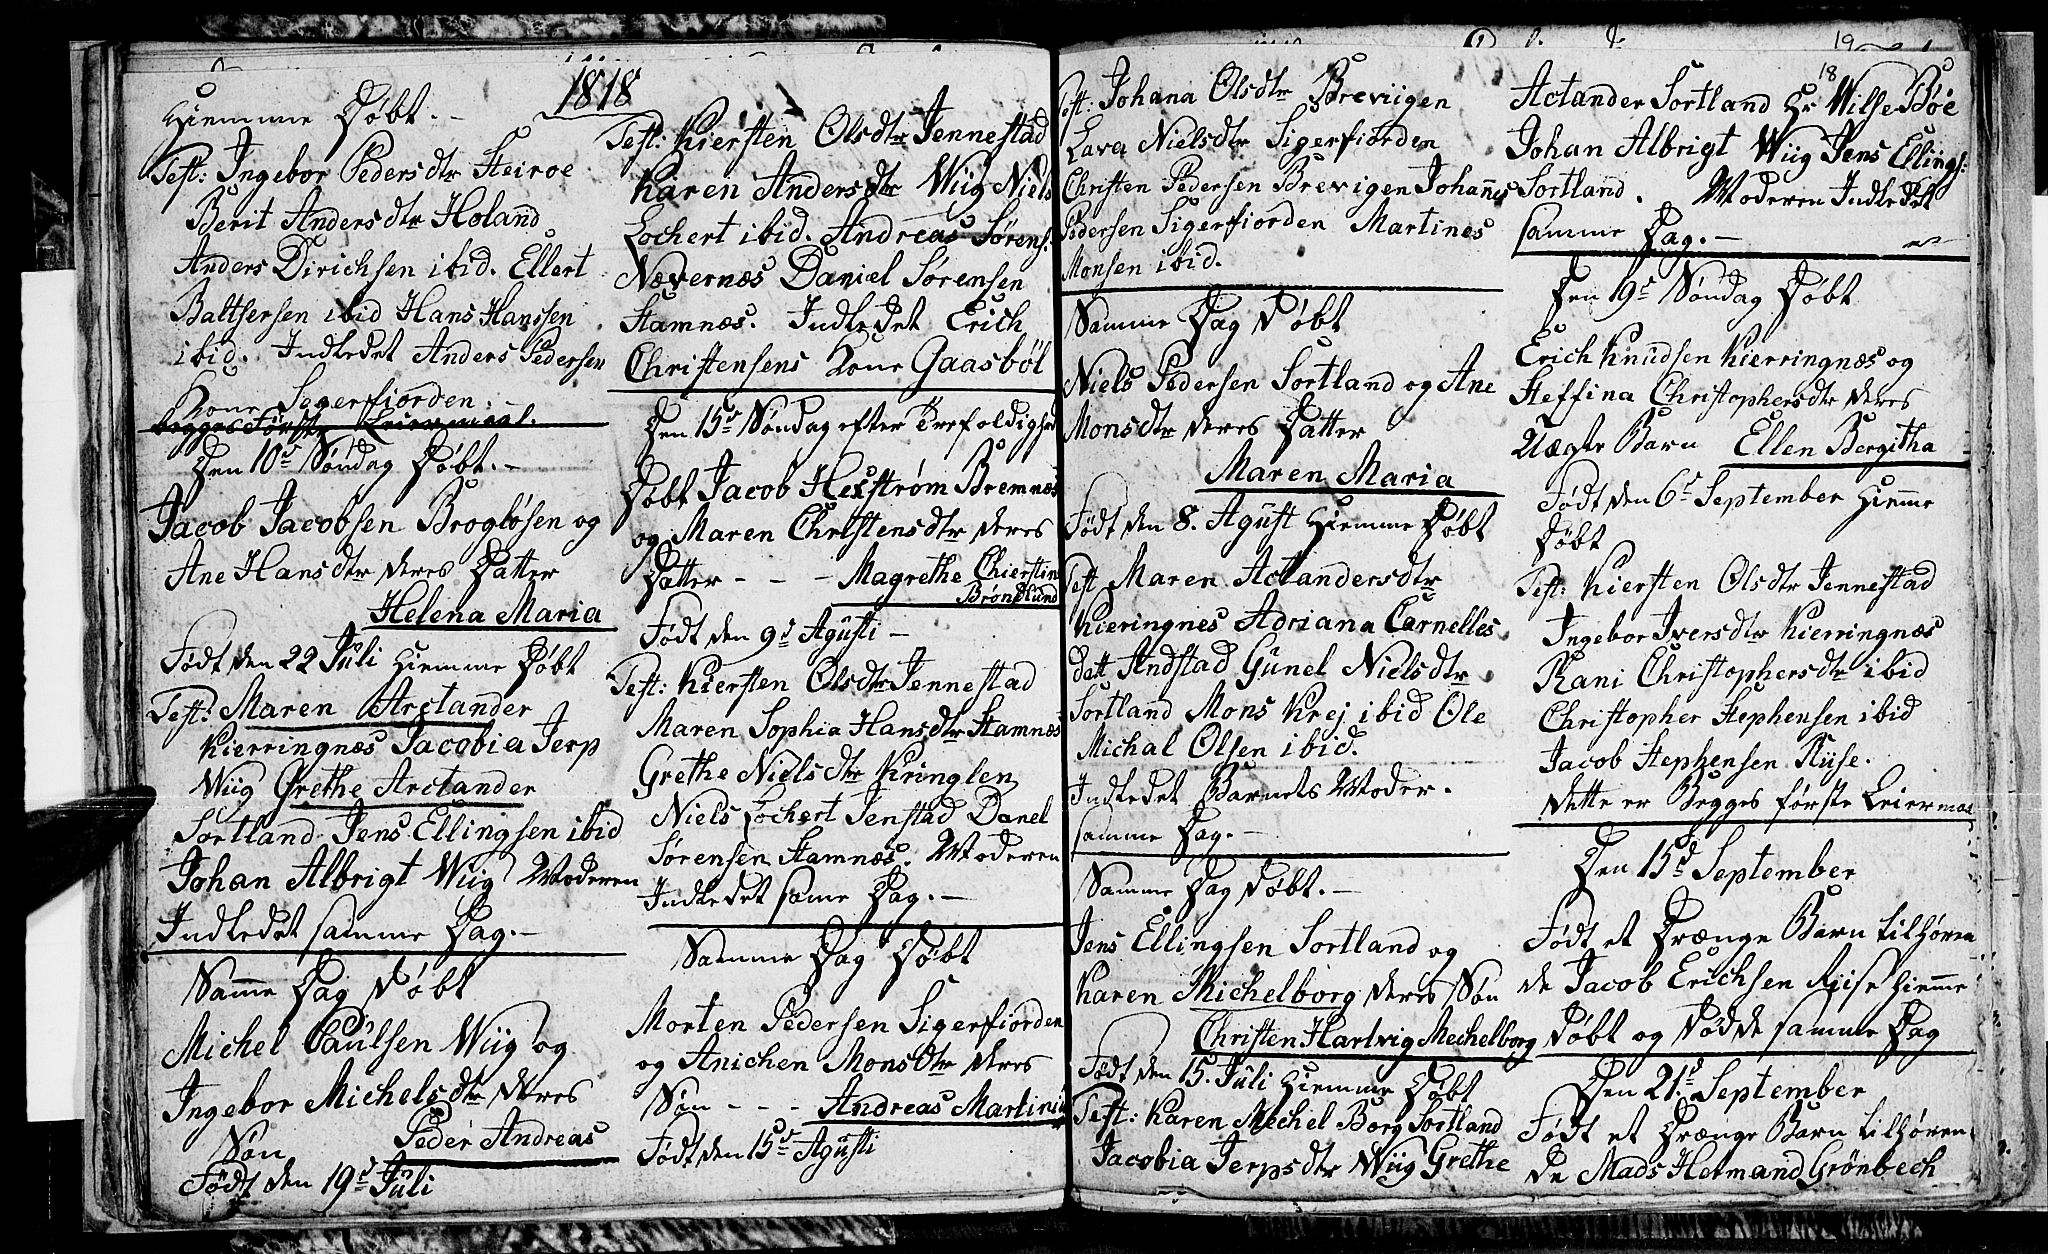 1818
Hiemme Døbt. -
Test: Ingebor Pedersdtr Steiroe
Berit Andersdtr Holand
Anders Dirichsen ibid. Ellert
Baltsersen ibid Hans Hanssen
ibid. Indledet Anders Pedersen
Kone Segerfiorden.
begges Første Leiermaal.
Den 10de Søndag Døbt. -
Jacob Jacobsen Brogløsen og
Ane Hansdtr deres Datter
Helena Maria
Født den 22 Juli Hiemme Døbt
Test: Maren Arctander
Kierringnæs Jacobia Jerp
Wiig Grethe Arctander
Sortland Jens Ellingsen ibid
Johan Albrigt Wiig Moderen
Indledet samme Dag. -
Samme Dag Døbt
Michel Paulsen Wiig og
Ingebor Michelsdtr deres
Søn Peder Andreas
Født den 19de Juli
Test: Kiersten Olsdtr Jennestad
Karen Andersdtr Wiig Niels
Lochert ibid. Andreas Sørens.
Nævernæs Daniel Sørensen
Stamnæs. Indledet Erich
Christensens Kone Gaasbøl
Den 15de Søndag efter Trefoldighed
Døbt Jacob Hexstrøm Bremnæs
og Maren Christensdtr deres
Datter - - - Magrethe Chierstin
Brøndlund
Født den 9de Agusti -
Test: Kiersten Olsdtr Jennestad
Maren Sophia Hansdtr Stamnæs
Grethe Nielsdtr Kringlen
Niels Lochert Jenstad Danel
Sørensen Stamnæs. Moderen
Indledet same Dag. -
Samme Dag Døbt
Morten Pedersen Sigerfiorden
og Anichen Monsdtr deres
Søn - - - Andreas Martinus
Født den 15de Agusti
19
18
Test: Johana Olsdtr Breviigen
Lava Nielsdtr Sigerfiorden
Christen Pedersen Brevigen Johannes
Pedersen Sigerfiorden Martines
Monsen ibid.
Samme Dag Døbt
Niels Pedersen Sortland og Ane
Monsdtr deres Datter
Maren Maria
Født den 8. Agust Hiemme Døbt
Test Maren Actandersdtr
Kieringnes Adriana Carnelles
datt Andstad Gunel Nielsdtr
Sortland Mons Krej ibid Ole
Michal Olsen ibid.
Indledet Barnets Moder.
samme Dag. -
Samme Dag Døbt. -
Jens Ellingsen Sortland og
Karen Michelborg deres Søn
Christen Hartvig Mechelborg
Født den 15. Juli Hiemme Døbt
Test: Karen Mechel Borg Sortland
Jacobia Jerpsdtr Wiig Grethe
Actander Sortland Hr Wilse Bøe
Johan Albrigt Wiig Jens Ellings:
Sortland. Moderen Indledet
samme Dag. -
Den 19de Søndag Døbt
Erich Knudsen Kierringnæs og
Steffina Christophersdtr deres
Uægte Barn Ellen Bergitha
Født den 6te September Hiemme
Døbt
Test: Kiersten Olsdtr Jennestad
Ingebor Iversdtr Kierringnæs
Rani Christophersdtr ibid
Christopher Stephensen ibid
Jacob Stephensen Riise.
dette er Begges første Leiermaal
Den 15de September
Født et Drænge Barn tilhøren
de Jacob Erichsen Riise Hiemme
Døbt og Døde samme Dag
Den 21de September
Født et Drænge Barn tilhøren
de Mads Hermand Grønbech